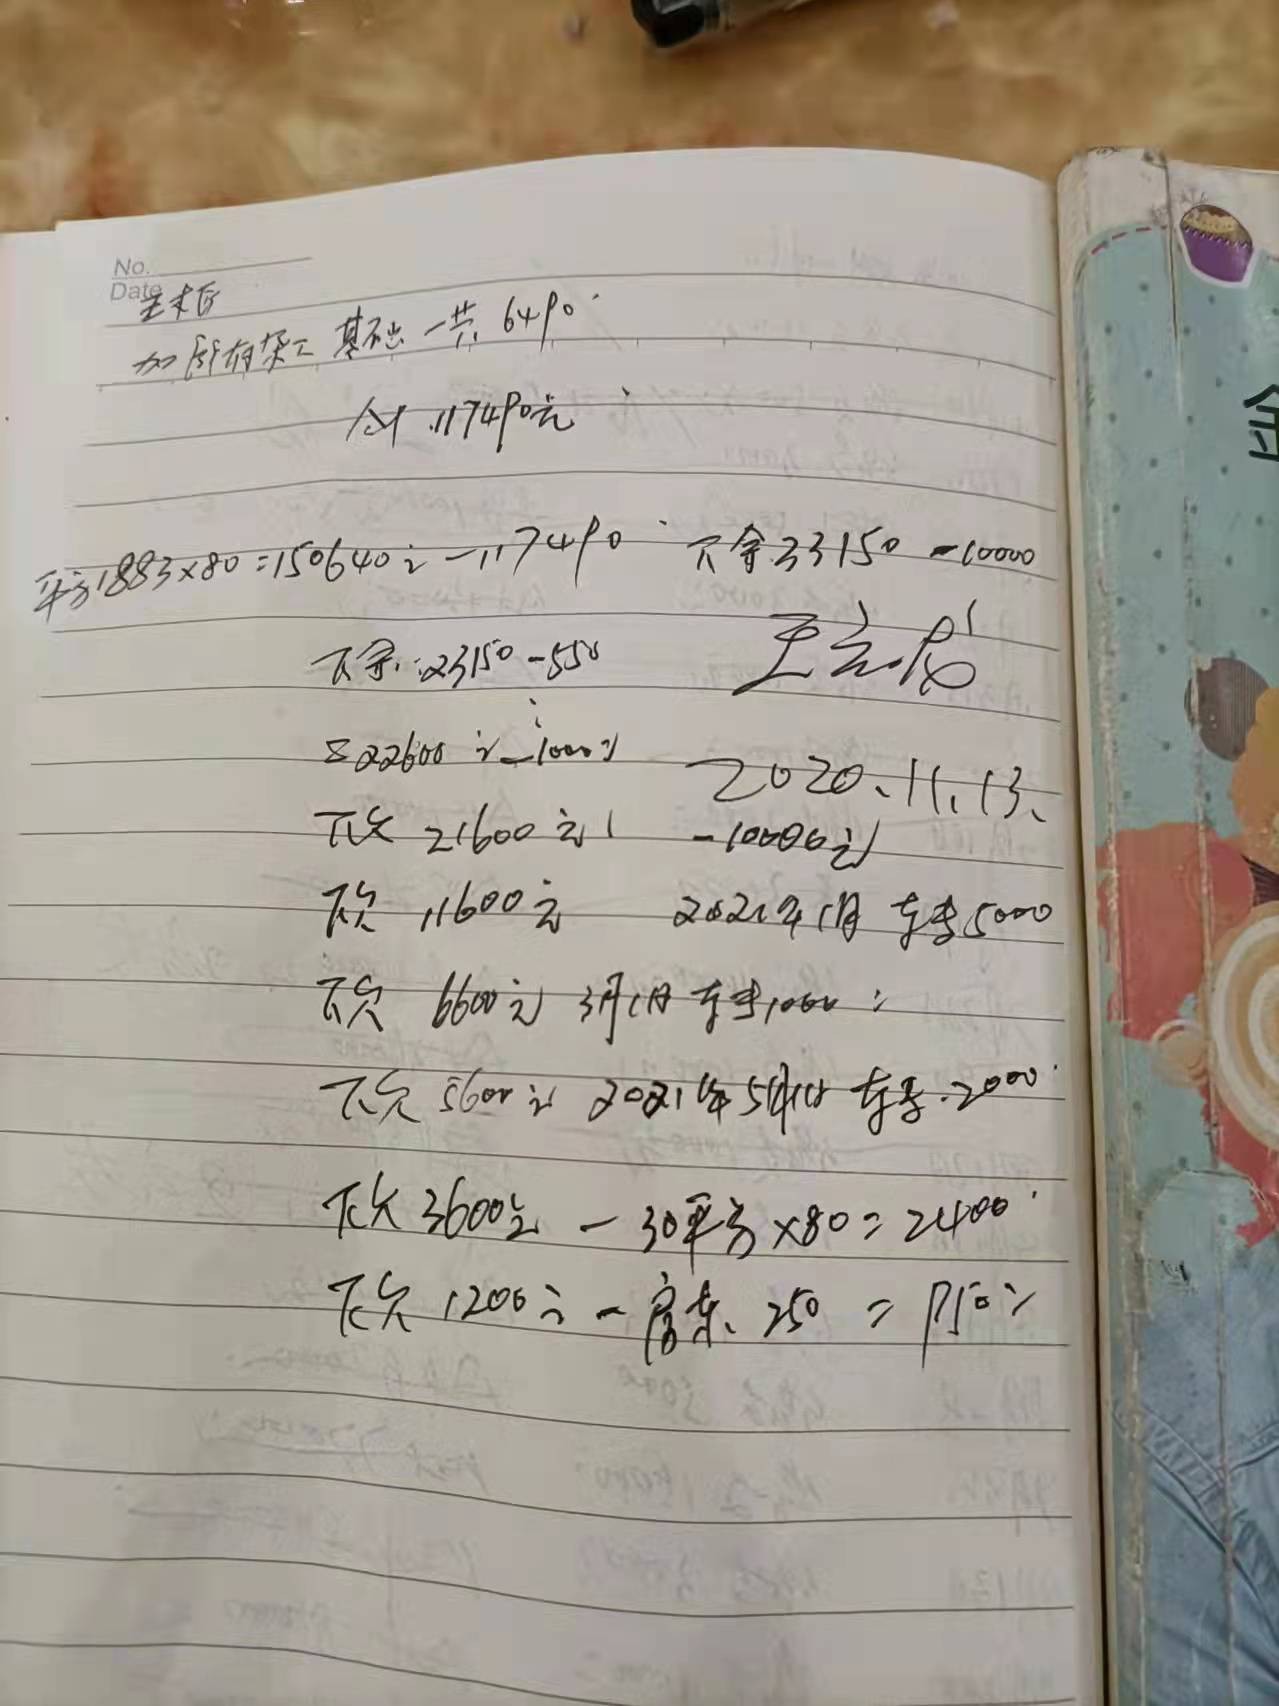 No.
Date
王木匠
加所有架工基础一共6490
合计117490元
平方1883×80=150640元-117490 下余33150-10000
下余:23150-550
王
欠22600元-1000元
2020.11.13.
下欠21600元 -10000元
下欠11600元 2021年1月 支5000
下欠6600元 3月1日 支1000
下欠5600元 2021年5月 支2000
下欠3600元-30平方×80=2400
下欠1200元-房东250=950元